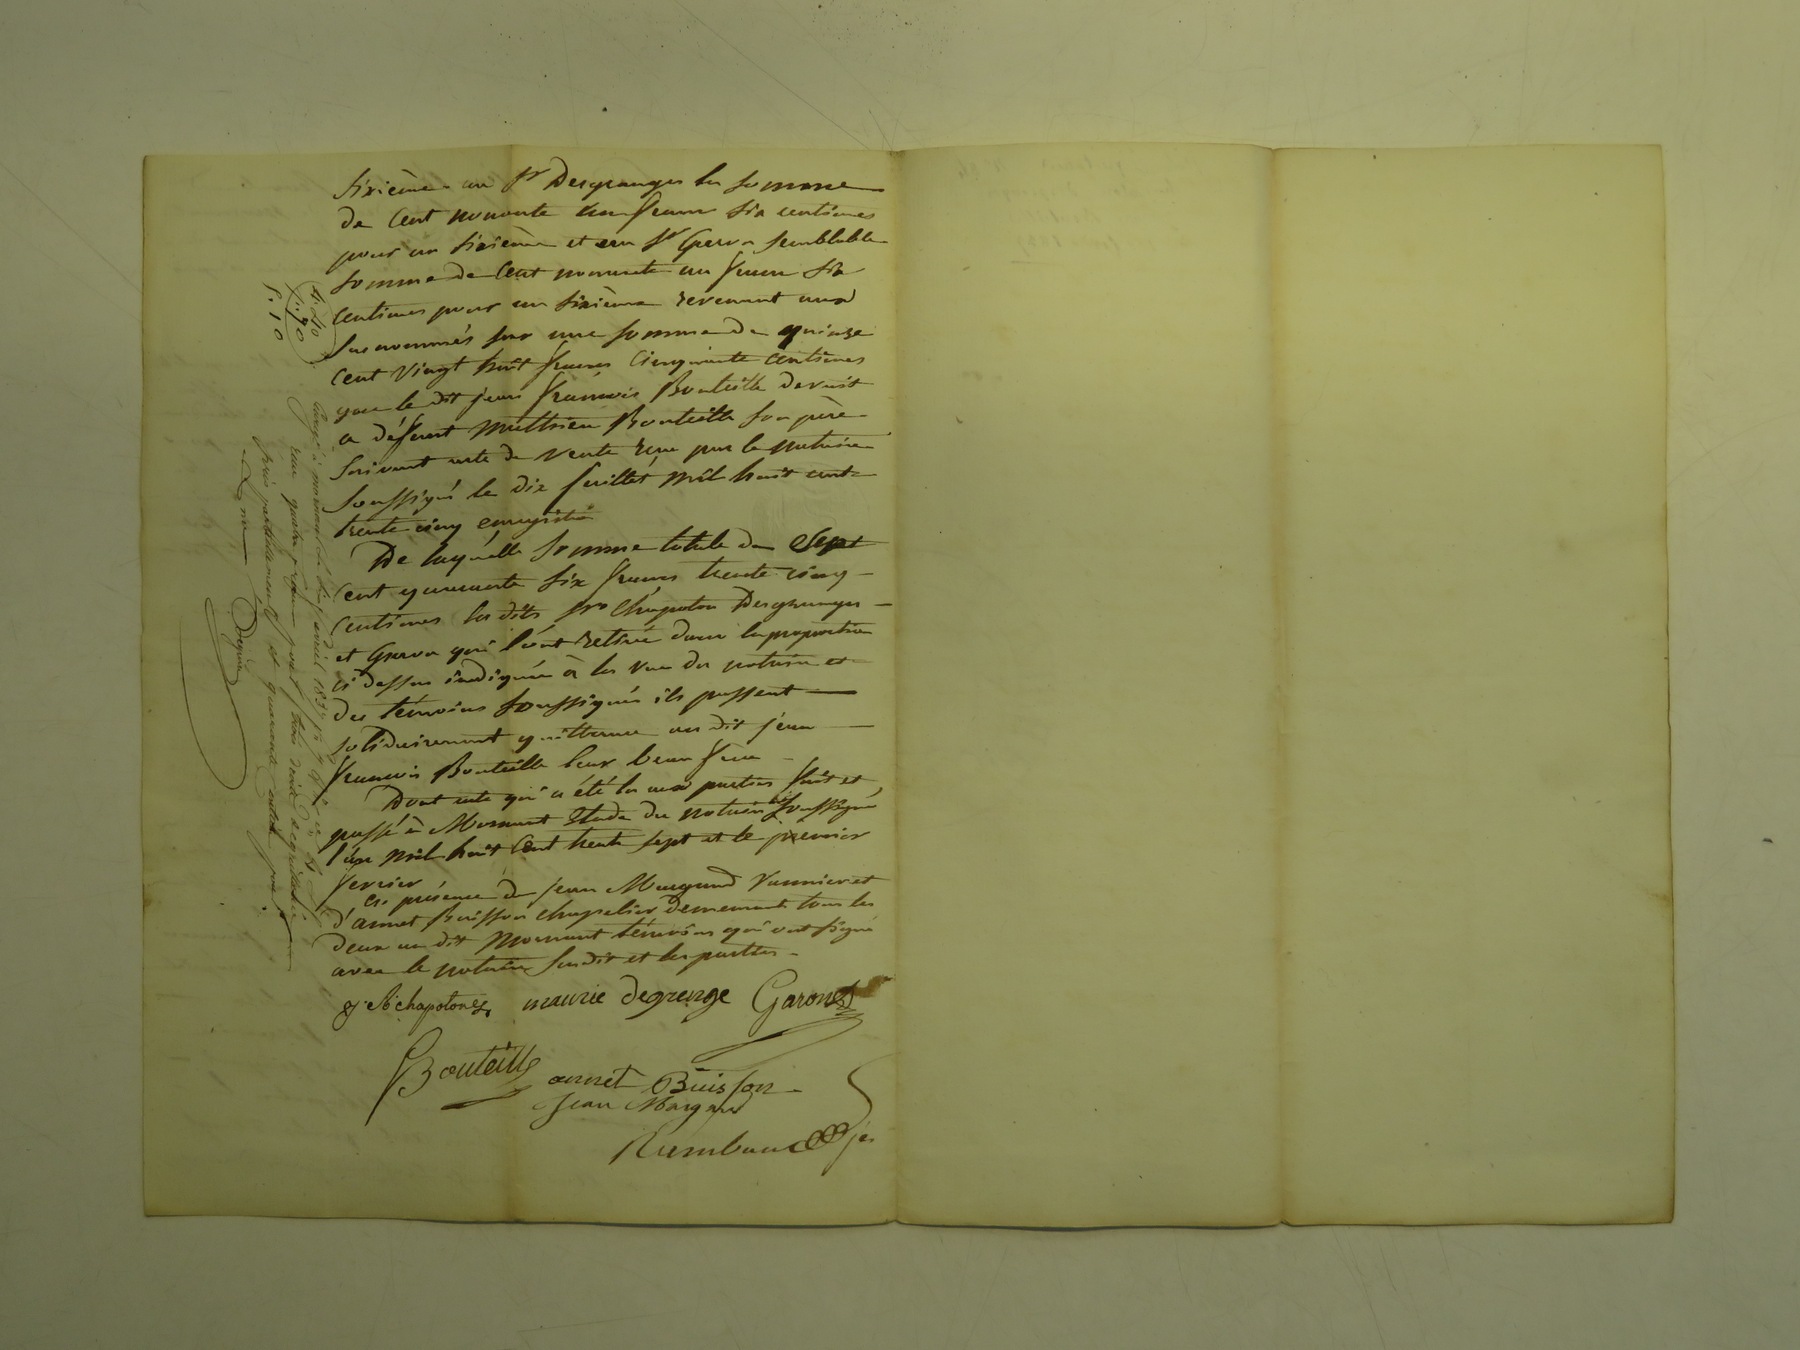 sixième au Sr Desgranges la somme
de Cent nonante un francs six centimes
pour un sixième et au Sr Garon semblable
somme de Cent nonante un francs six
centimes pour un sixième revenant aux
susnommés sur une somme de quinze
cent vingt huit francs cinquante centimes
que le dit jean françois Bouteille devait
a défunt Matthieu Bouteille son père
suivant acte de vente reçu par le notaire
soussigné le dix juillet mil huit cent
trente cinq enregistré
De laquelle somme totale de Sept
cent quarante six francs trente cinq
centimes les dits Srs Chapoton Desgranges
et Garon qui l'ont retirée dans la proportion
ci dessus indiquée à la vue du notaire et
des témoins soussignés ils passent
solidairement quittance au dit jean
françois Bouteille leur beau frere
Dont acte qui a été lu aux parties fait et
passé à Mornant Etude du notaire soussigné
l'an mil huit Cent trente sept et le premier
fevrier
En présence de jean Margand vannier et
d'annet Buisson chapelier demeurant tous les
deux au dit Mornant témoins qui ont signé
avec le notaire susdit et les parties
chapoton maurie degrenge Garon
Bouteille annet Buisson
Jean Margand
4: 40
: 70
5: 10
reçu quatre francs